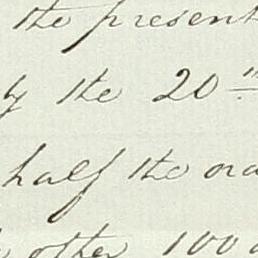 the present
by the 20th
half the
other 100